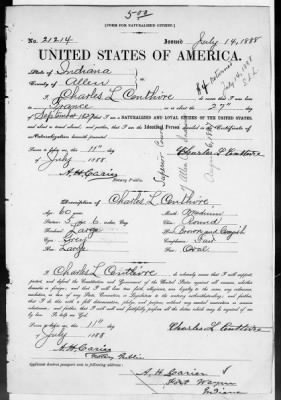 502
[FORM FOR NATURALIZED CITIZEN.]
No. 21214 Issued July 14, 1888
UNITED STATES OF AMERICA.
State of Indiana
County of Allen
I, Charles L Centlivre, do swear that I was born
in France on or about the 27th day
of September 1827; that I am a NATURALIZED AND LOYAL CITIZEN OF THE UNITED STATES,
and about to travel abroad; and further, that I am the Identical Person described in the Certificate of
Naturalization herewith presented.
Sworn to before me, this 11th day
of July 1888
Charles L Centlivre
A. H. Carier
Notary Public.
Description of Charles L Centlivre
Age: 60 years Mouth: Medium
Stature: 5 feet 6 inches, Eng. Chin: Round
Forehead: Large Hair: Brown and Grayish
Eyes: Grey Complexion: Fair
Nose: Large Face: Oval
I, Charles L Centlivre, do solemnly swear that I will support,
protect, and defend the Constitution and Government of the United States against all enemies, whether
domestic or foreign; and that I will bear true faith, allegiance, and loyalty to the same, any ordinance,
resolution, or law of any State, Convention, or Legislature to the contrary notwithstanding; and further,
that I do this with a full determination, pledge, and purpose, without any mental reservation or evasion
whatsoever; and further, that I will well and faithfully perform all the duties which may be required of me
by law. So help me God.
Sworn to before me, this 11th day
of July 1888
Charles L Centlivre
A. H. Carier
Notary Public
Applicant desires passport sent to following address:
A. H. Carier
Fort Wayne
Indiana
Superior Court
Allen
August 6, 1887
returned
July 14, 1888